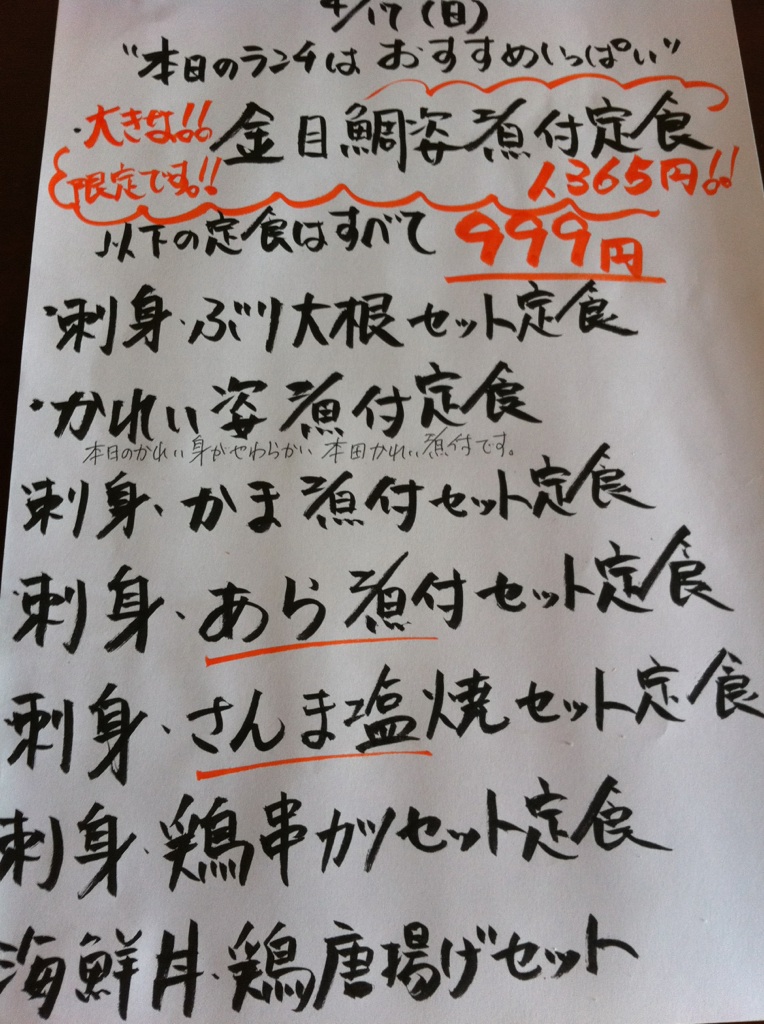 4/17(日)
"本日のランチは おすすめいっぱい"
・大きな!! 金目鯛姿煮付定食
限定です。!! 1365円!!
以下の定食はすべて 999円
・刺身・ぶり大根セット定食
・かれい姿煮付定食
本日のかれい身がやわらかい 本田かれい煮付です。
刺身・かま煮付セット定食
刺身・あら煮付セット定食
刺身・さんま塩焼セット定食
刺身・鶏串カツセット定食
海鮮丼・鶏唐揚げセット